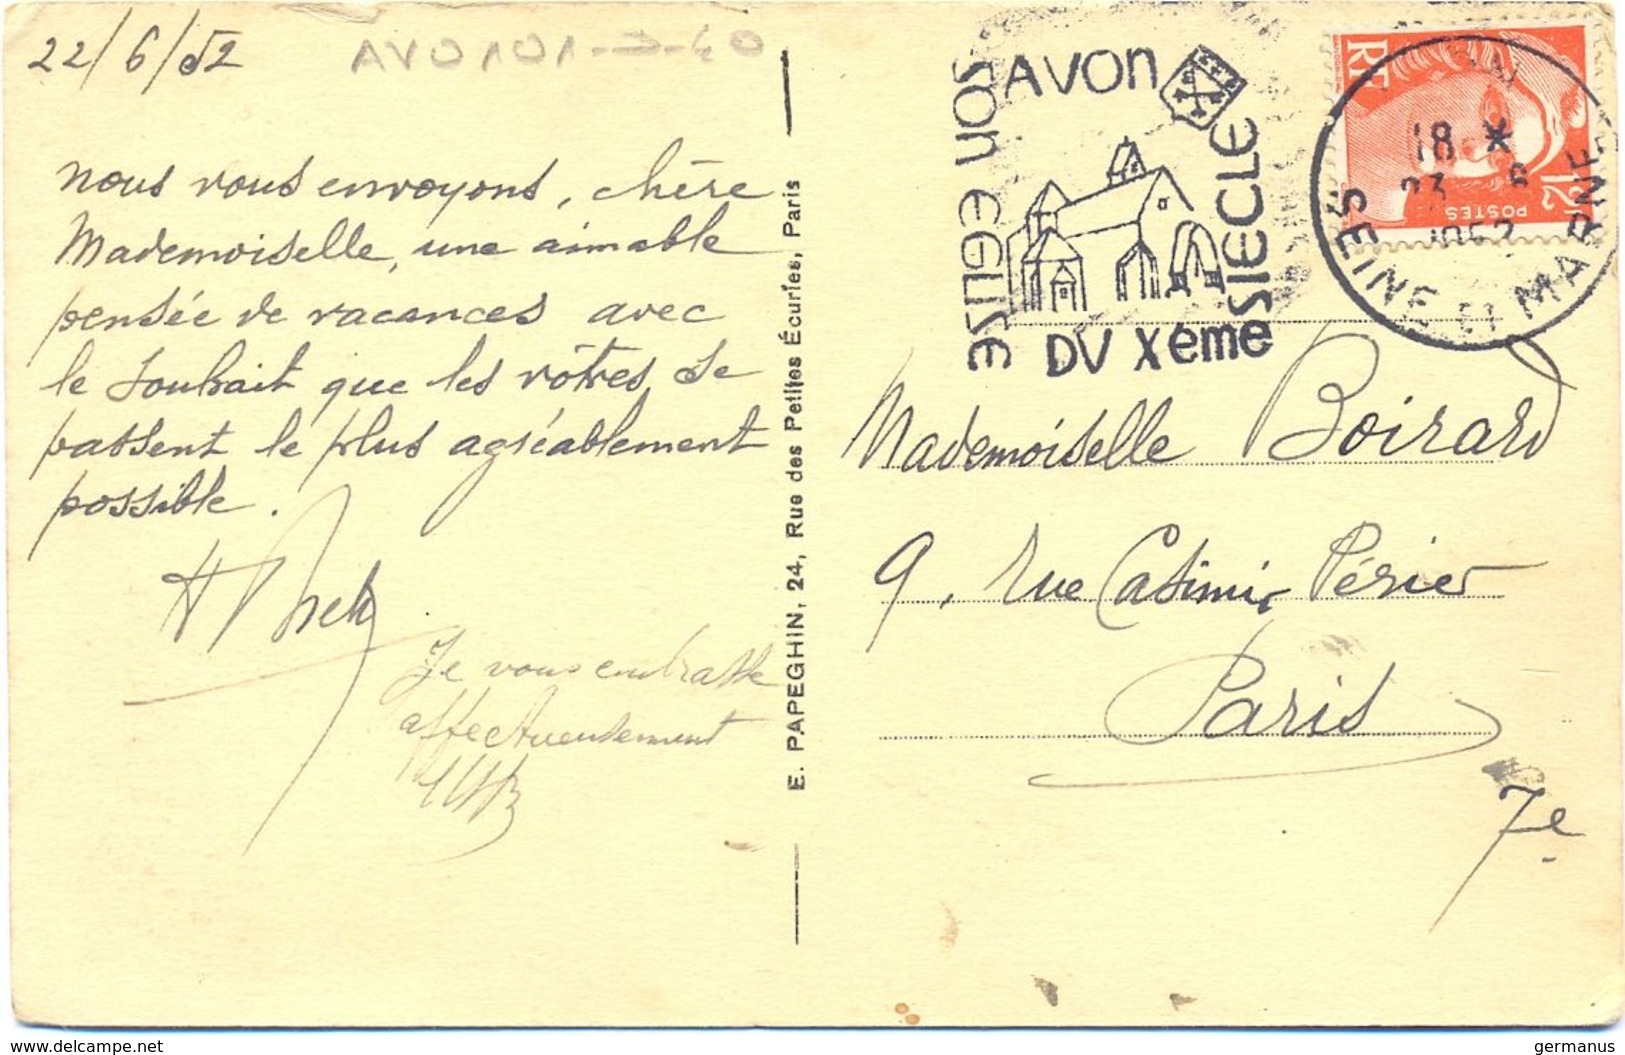 22/6/52
AVO101-D-40
nous vous envoyons, chère
Mademoiselle, une aimable
pensée de vacances avec
le souhait que les vôtres se
passent le plus agréablement
possible.
Je vous embrasse
affectueusement
E. PAPEGHIN, 24, Rue des Petites Écuries, Paris
AVON
SON EGLISE
DU Xeme
SIECLE
18 *
23 6
1952
SEINE ET MARNE
RF
POSTES
12F
Mademoiselle Boirard
9, rue Casimir Périer
Paris
7e
www.delcampe.net
germanus